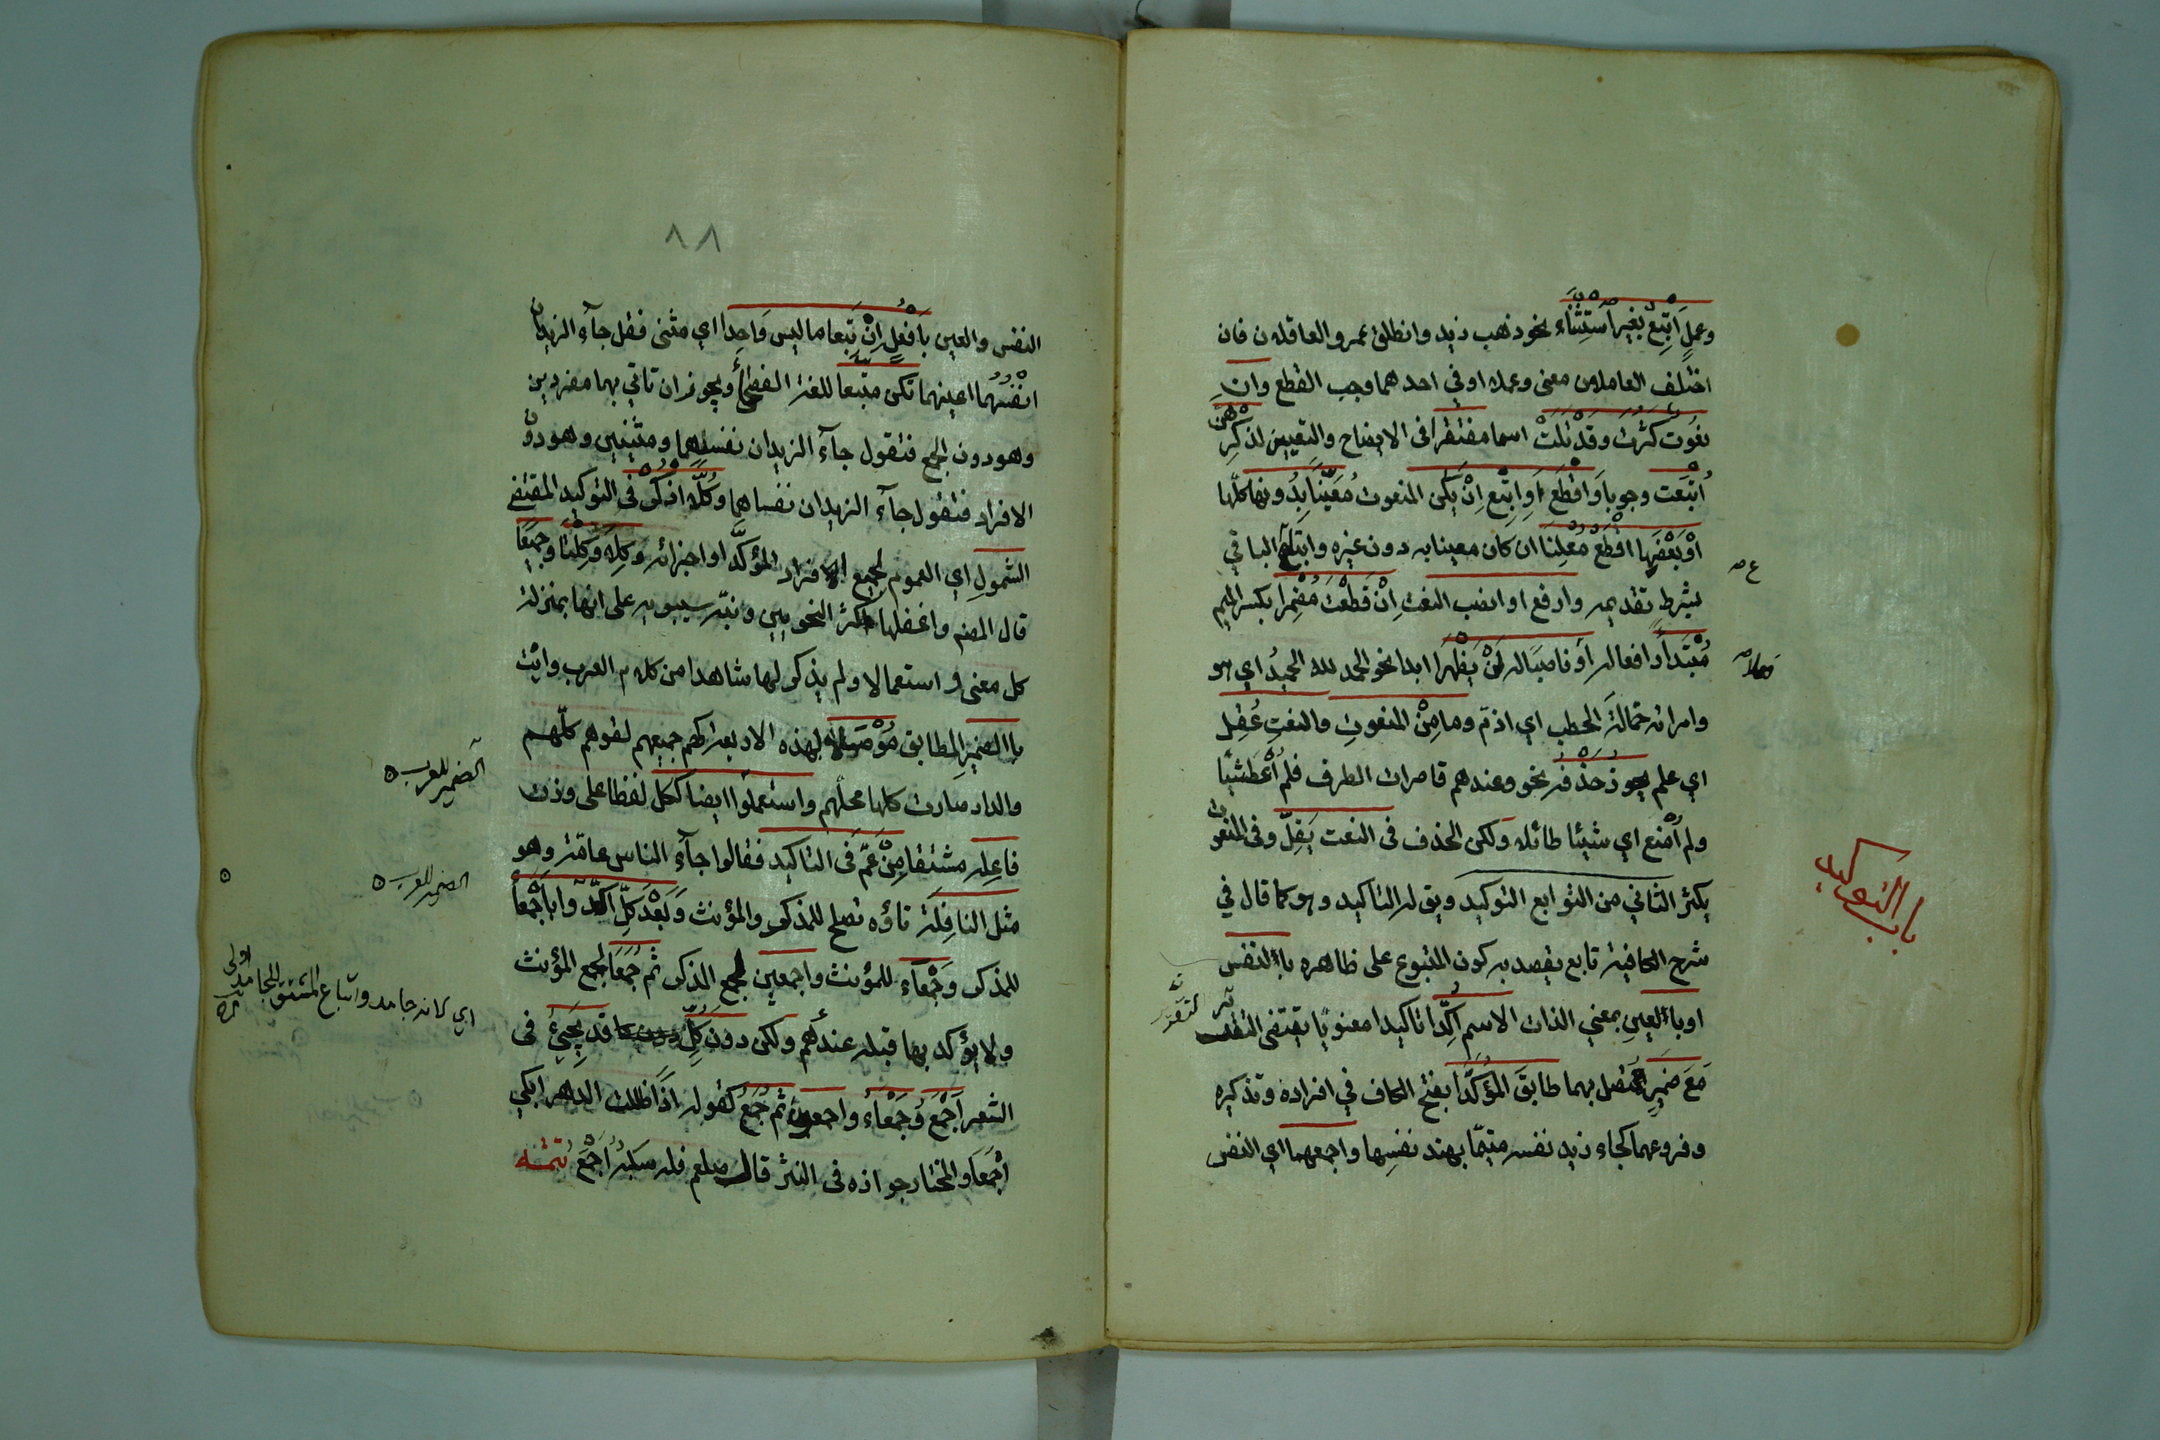 وعملٍ اَتْبِعْ بغيرِ اسْتِثْنَاء نحو ذهب زيد وانطلق عمرو العاقلان فان
اختلف العاملان معنى وعملا او في احدهما وجب القطع وان
نعوت كثرت وقد تلت اسما مفتقرا فى الايضاح والتعيين لذكرهن
اُتبعت وجوبا واقطع او اتبع ان يكن المنعوت معينا بدونها كلها
او بعضها اقطع معلنا ان كان معينا به دون غيره واتبع الباقي
بشرط تقديمه وارفع او انصب النعت ان قطعت مضمرا بكسر الميم
مبتدأ رافعا له او ناصبا له لن يظهرا ابدا نحو الحمد لله الحميد اي هو
وامراته حمالة الحطب اي اذم وما من المنعوت والنعت عقل
اي علم يجوز حذفه نحو وعندهم قاصرات الطرف فلم اعط شيئا
ولم امنع اي شيئا طائلا ولكن الحذف فى النعت يقل وفى المنعوت
يكثر الثاني من التوابع التوكيد ويق له التاكيد وهو كما قال في
شرح الكافية تابع يقصد به كون المتبوع على ظاهره بالنفس
او بالعين بمعني الذات الاسم اكدا تاكيدا معنويا يقتضى التقرير
مع ضمير متصل بهما طابق المؤكدا بفتح الكاف في افراده وتذكيره
وفروعهما كجاء زيد نفسه متيمًا بهند نفسها واجمعهما اي النفس
ع صح
باب التوكيد
٨٨
النفس والعين بافعل ان تبعا ما ليس واحدا اي مثنى فقل جآء الزيدان
انفسهما اعينهما تكن متبعا للغة الفصحى ويجوز ان تاتي بهما مفردين
وهو دون الجمع فتقول جآء الزيدان نفسهما ومثنيين وهو دون
الافراد فتقول جآء الزيدان نفساهما وكلا اذكر فى التوكيد المقتضى
الشمول اي العموم لجميع افراد المؤكد او اجزائه وكلا وكلتا وجميعا
قال المصنف واغفلها اكثر النحويين ونبه سيبويه على انها بمنزلة
كل معنى واستعمالا ولم يذكر لها شاهدا من كلام العرب وايت
بالضمير المطابق موصلا لهذه الاربعة كلهم جميعهم لقوهم كلهم
والدار صارت كلها محلهم واستعملوا ايضا ككل لفظا على وزن
فاعله مشتقا من عم فى التاكيد فقالوا جآء الناس عامة وهو
مثل النافلة تاؤه تصلح للمذكر والمؤنث وبعد كل اكدوا باجمعا
للمذكر وجمعاء للمؤنث واجمعين لجمع المذكر ثم جمعا لجمع المؤنث
ولا يؤكد بها قبله عندهم ولكن دون كل قد يجيئ فى
الشعر اجمع وجمعاء واجمعون ثم جمع كقوله اذا ظللت الدهر ابكي
اجمعا والمختار جوازه فى النثر قال صلعم فله سلبه اجمع تتمة
الضمير للعرب
الضمير للعرب
اي لانه جامد واتباع المشتق للجامد اولى